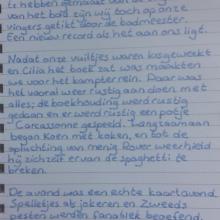 te hebben gemaakt van de
van het bad zijn wij toch op onze
vingers getikt door de badmeester.
Een nieuw record als het aan ons ligt.
Nadat onze vuiltjes waren losgeweekt
en Cilia het boek zat was maakten
we voor het kampterrein. Daar was
het vooral weer rustig aan doen met
alles; de boekhouding werd rustig
gedaan en er werd rustig een potje
Carcassonne gespeeld. Langzaam aan
began Koen met koken, en tot de
opluchting van menig Rover weerhield
hij zichzelf ervan de spaghetti te
breken.
De avond was een echte kaartavond.
Spelletjes als jokeren en Zweeds
pesten werden fanatiek beoefend.